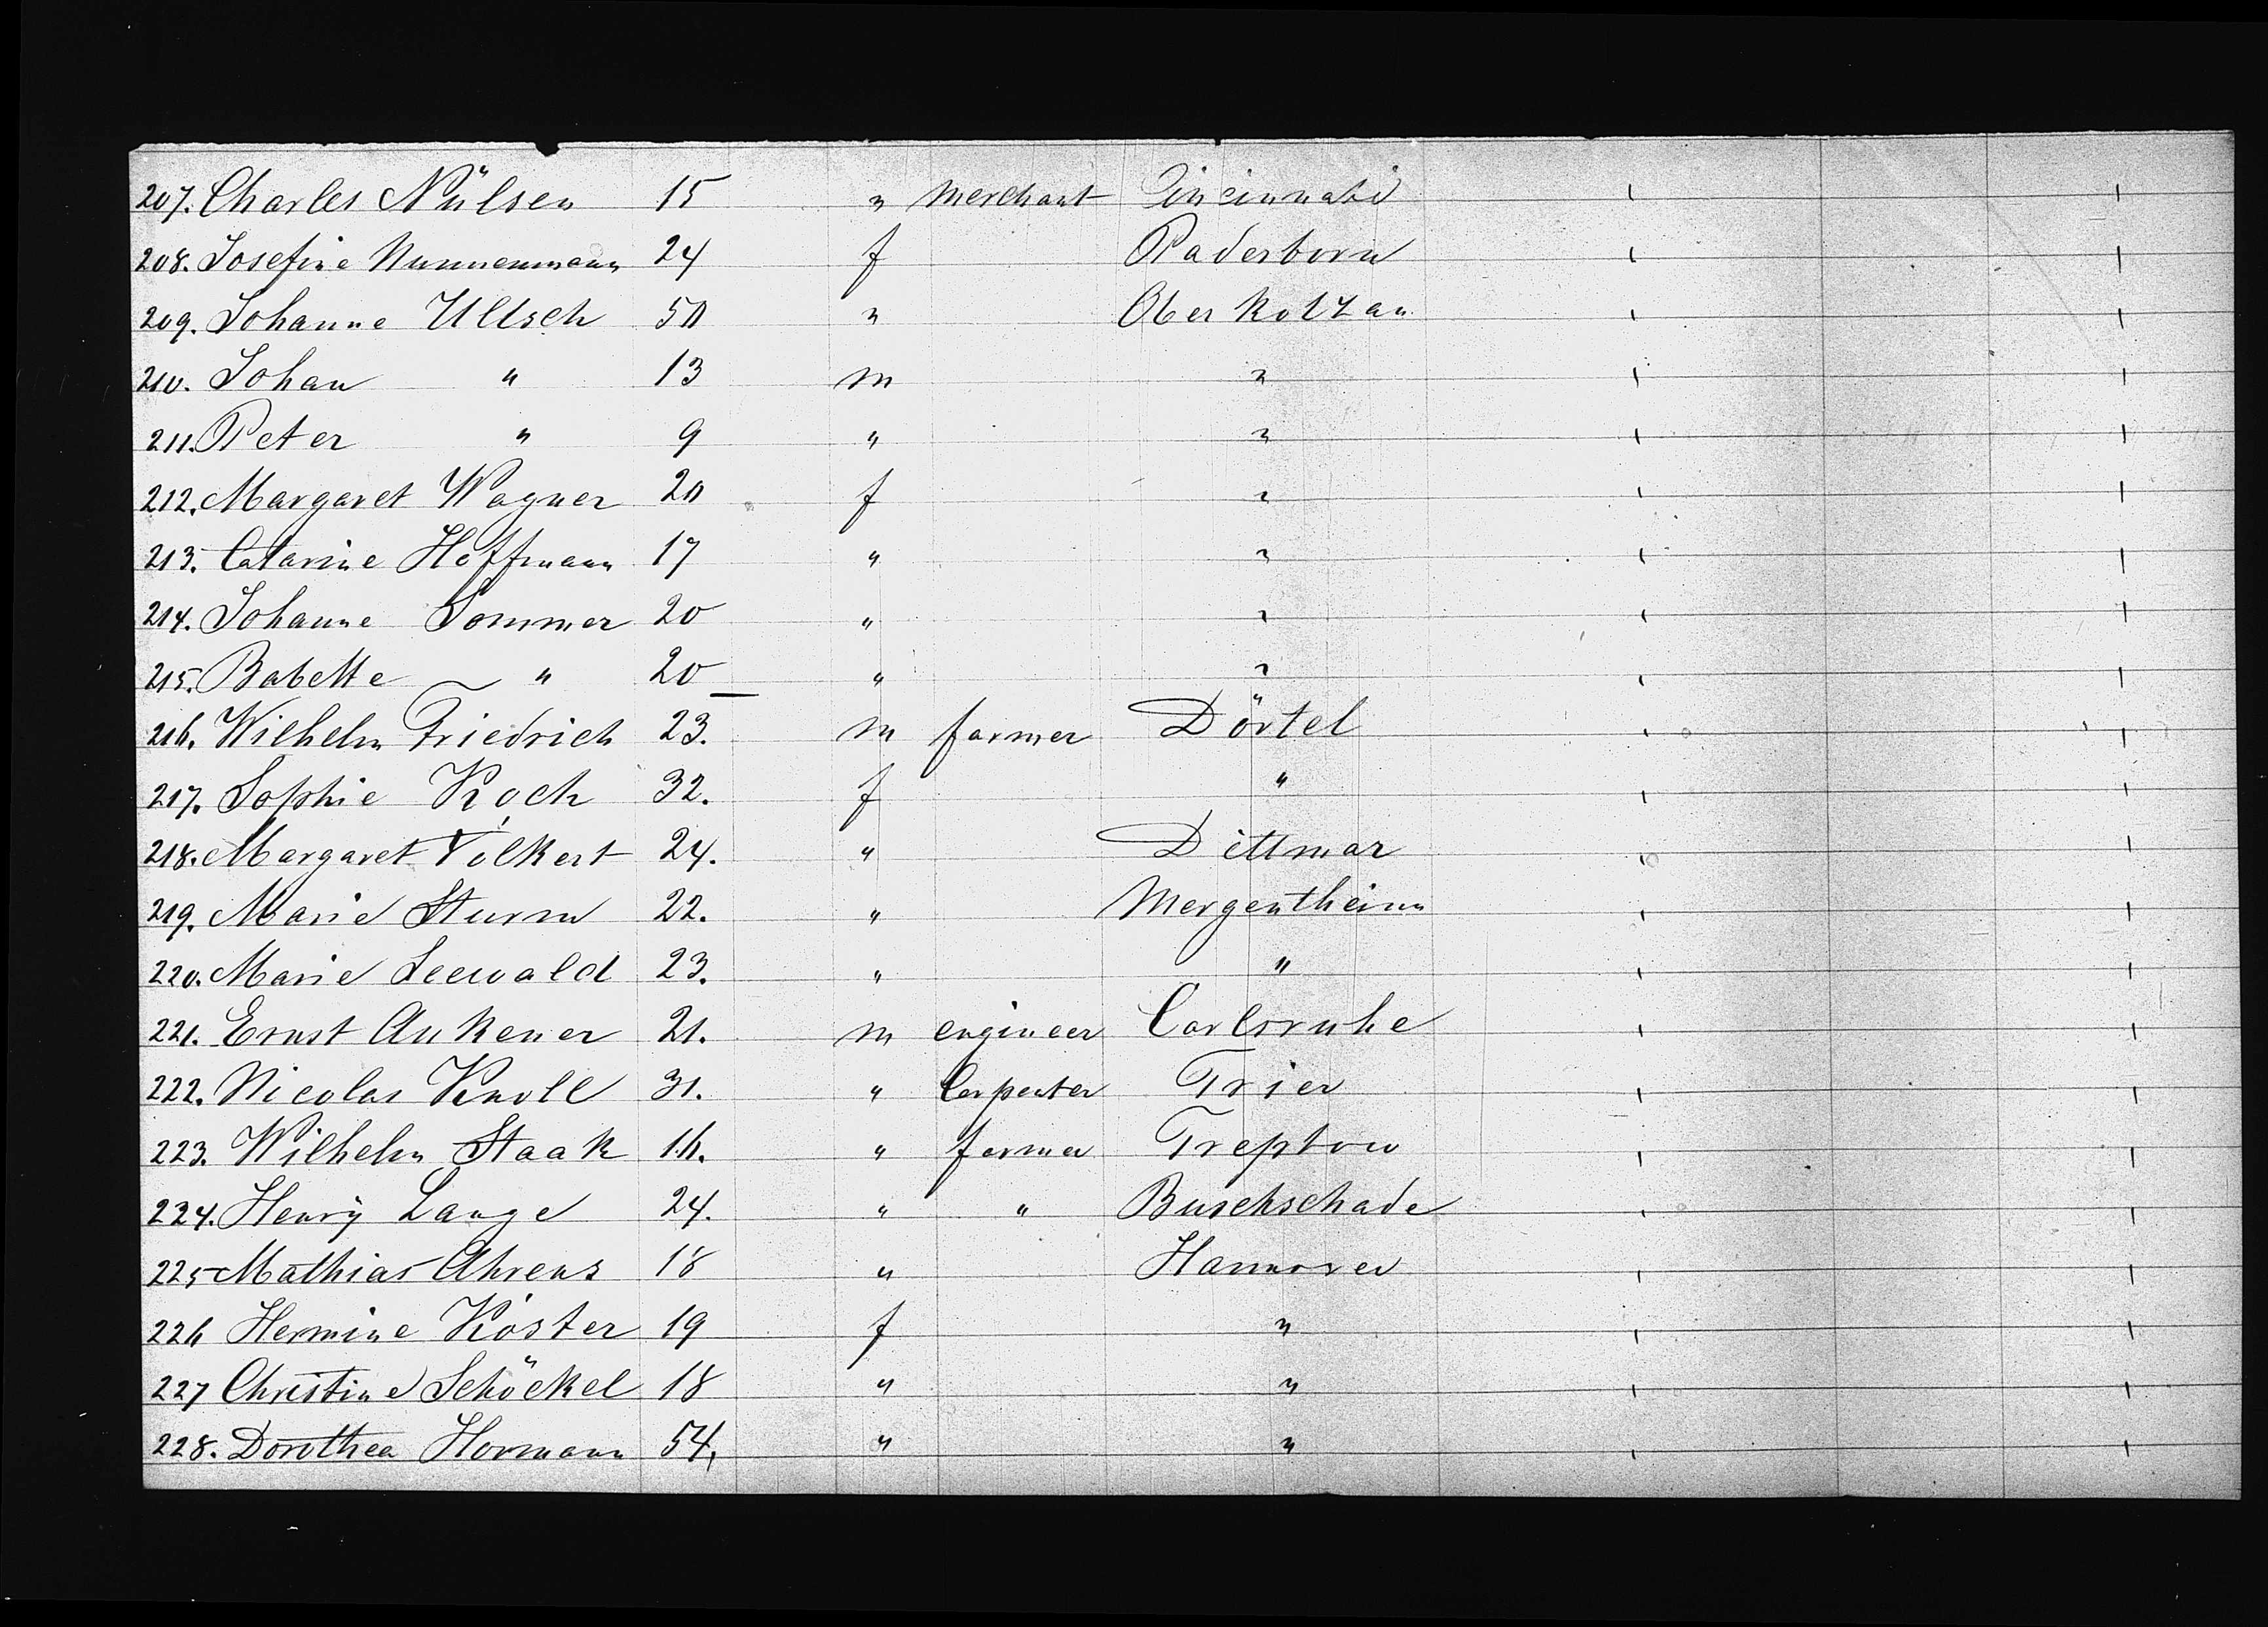 207. Charles Nülsen 15 " merchant Cincinnati
208. Josefine Nunnenmann 24 f Paderborn
209. Johanne Ultsch 50 " Ober Kotzau
210. Johan " 13 m "
211. Peter " 9 " "
212. Margaret Wagner 20 f "
213. Catarine Hoffmann 17 " "
214. Johanne Sommer 20 " "
215. Babette " 20 " "
216. Wilhelm Friedrich 23. m farmer Dörtel
217. Sophie Koch 32. f "
218. Margaret Volkert 24. " Dittmar
219. Marie Sturm 22. " Mergentheim
220. Marie Seewald 23. " "
221. Ernst Aukener 21. m engineer Carlsruhe
222. Nicolas Knoll 31. " Carpenter Trier
223. Wilhelm Staak 16. " farmer Treptow
224. Henry Lange 24. " " Buschschade
225 Mathias Ahrens 18 " Hannover
226 Hermine Köster 19 f "
227 Christine Schöckel 18 " "
228. Dorothea Hormann 54, " "